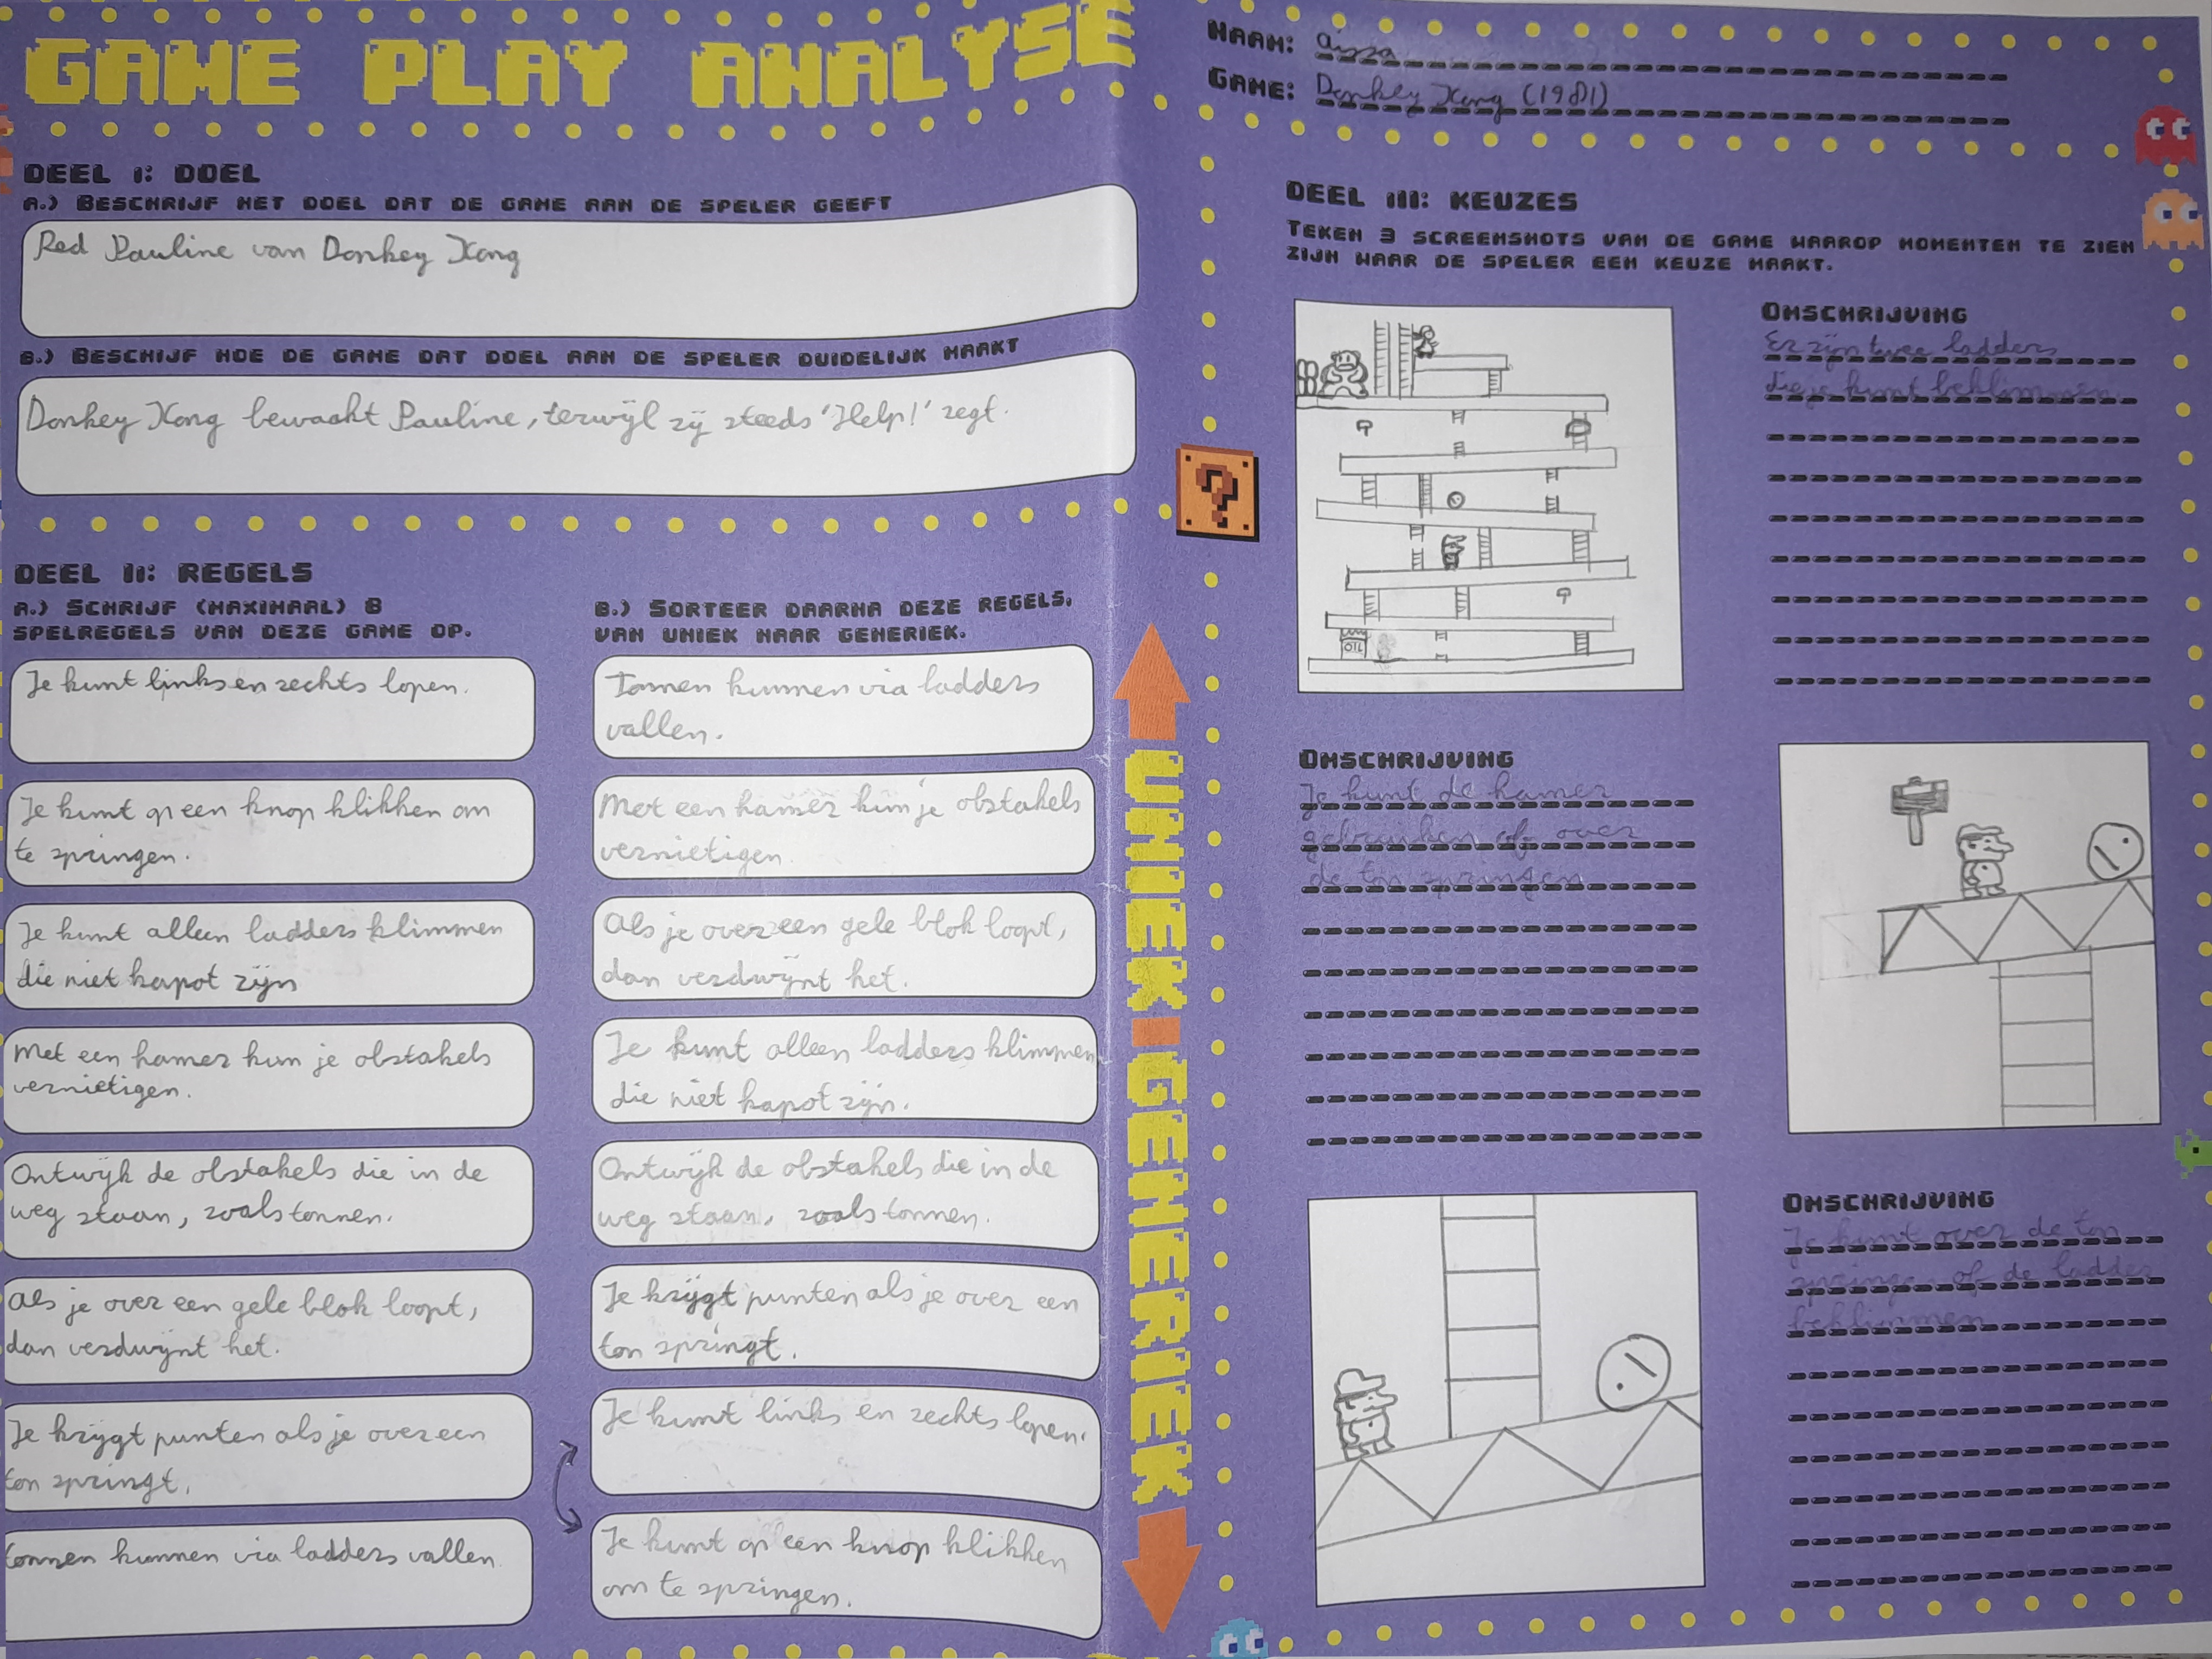 GAME PLAY ANALYSE
NAAM: Aissa
GAME: Donkey Kong (1981)
DEEL I: DOEL
A.) BESCHRIJF HET DOEL DAT DE GAME AAN DE SPELER GEEFT
Red Pauline van Donkey Kong
B.) BESCHIJF HOE DE GAME DAT DOEL AAN DE SPELER DUIDELIJK MAAKT
Donkey Kong bewaakt Pauline, terwijl zij steeds 'Help!' zegt.
DEEL II: REGELS
A.) SCHRIJF (MAXIMAAL) 8
SPELREGELS VAN DEZE GAME OP.
Je kunt links en rechts lopen.
Je kunt op een knop klikken om
te springen.
Je kunt alleen ladders klimmen
die niet kapot zijn
Met een hamer kun je obstakels
vernietigen.
Ontwijk de obstakels die in de
weg staan, zoals tonnen.
Als je over een gele blok loopt,
dan verdwijnt het.
Je krijgt punten als je over een
ton springt.
tonnen kunnen via ladders vallen.
B.) SORTEER DAARNA DEZE REGELS,
VAN UNIEK NAAR GENERIEK.
Tonnen kunnen via ladders
vallen.
Met een hamer kun je obstakels
vernietigen.
Als je over een gele blok loopt,
dan verdwijnt het.
Je kunt alleen ladders klimmen
die niet kapot zijn.
Ontwijk de obstakels die in de
weg staan, zoals tonnen.
Je krijgt punten als je over een
ton springt.
Je kunt links en rechts lopen.
Je kunt op een knop klikken
om te springen.
UNIEK GENERIEK
?
DEEL III: KEUZES
TEKEN 3 SCREENSHOTS VAN DE GAME WAAROP MOMENTEN TE ZIEN
ZIJN WAAR DE SPELER EEN KEUZE MAAKT.
OIL
OMSCHRIJVING
Er zijn twee ladders
die je kunt beklimmen
OMSCHRIJVING
Je kunt de hamer
gebruiken of over
de ton springen
OMSCHRIJVING
Je kunt over de ton
springen of de ladder
beklimmen